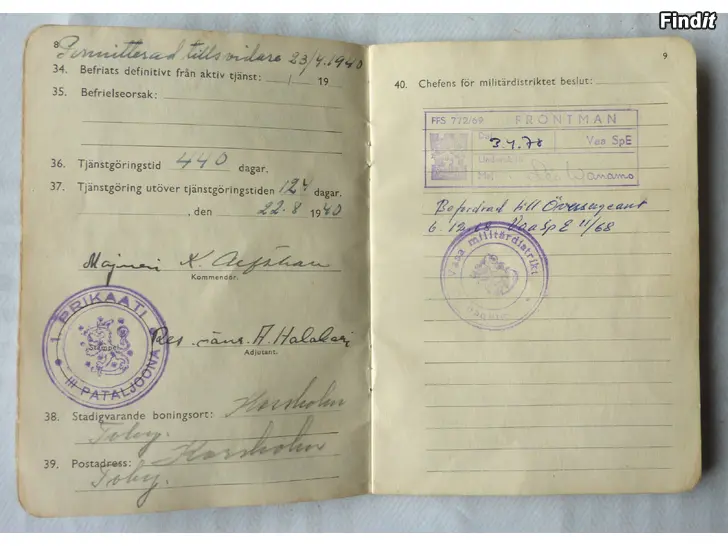 Findit
8
Permitterad tills vidare 23/4.1940
34. Befriats definitivt från aktiv tjänst: / 19
35. Befrielseorsak:
36. Tjänstgöringstid 440 dagar.
37. Tjänstgöring utöver tjänstgöringstiden 124 dagar.
, den 22.8 1940
Majuri K.
Kommendör.
I. PRIKAATI
III PATALJOONA
Res. A. Halabari
Adjutant.
38. Stadigvarande boningsort: Korsholm
Toby.
39. Postadress: Korsholm
Toby.
9
40. Chefens för militärdistriktet beslut:
FFS 772/69 FRONTMAN
3.4.78 Vaa SpE
Maj
Befordrad till Översergeant
6.12.68 VaaSpE 11/68
Vasa militärdistrikt